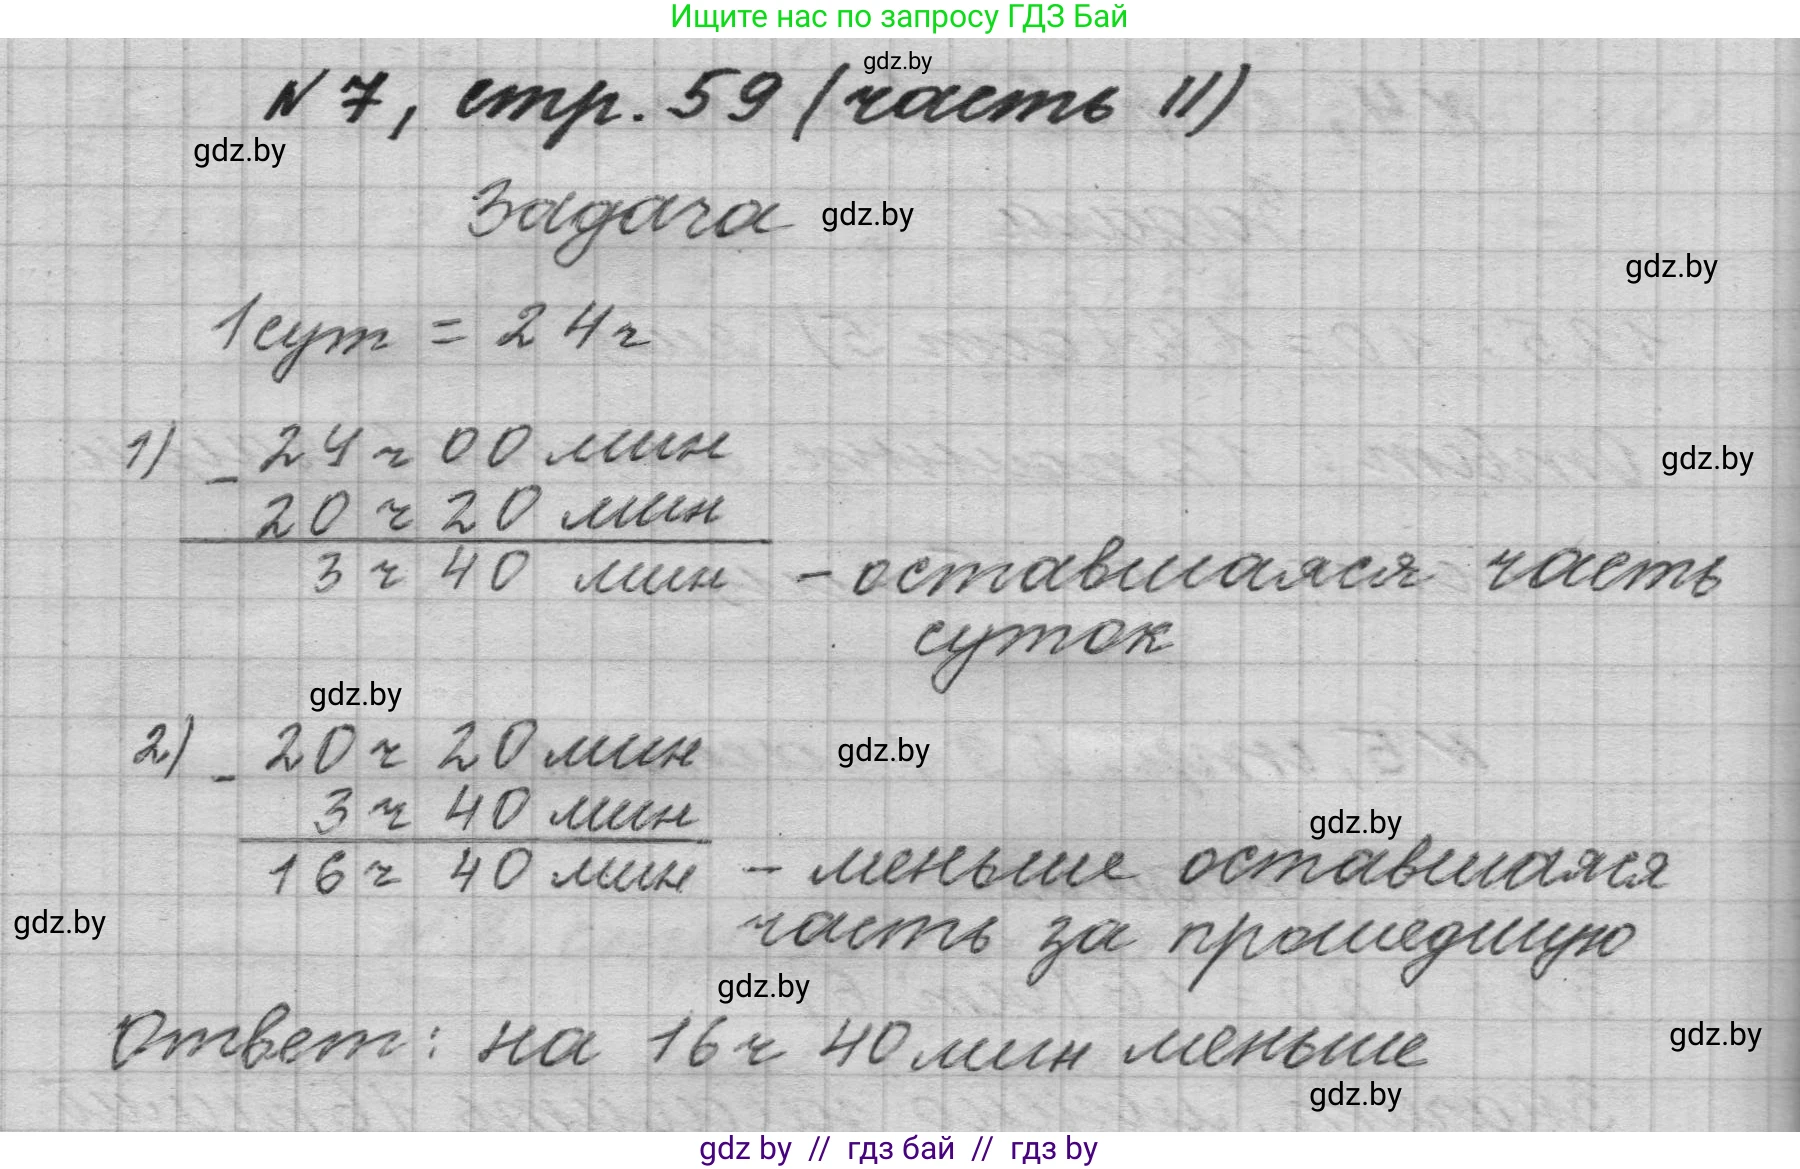 Ищите нас по запросу ГДЗ Бай
gdz.by
№7, стр. 59 (часть II)
gdz.by
Задача
gdz.by
gdz.by
1сут = 24ч
1) - 24 ч 00 мин
gdz.by
20 ч 20 мин
3 ч 40 мин - оставшаяся часть
суток
gdz.by
2) - 20 ч 20 мин
gdz.by
3 ч 40 мин
gdz.by
16 ч 40 мин - меньше оставшаяся
gdz.by
часть за прошедшую
gdz.by
Ответ: на 16 ч 40 мин меньше
gdz.by
gdz.by
gdz by // гдз бай // гдз by